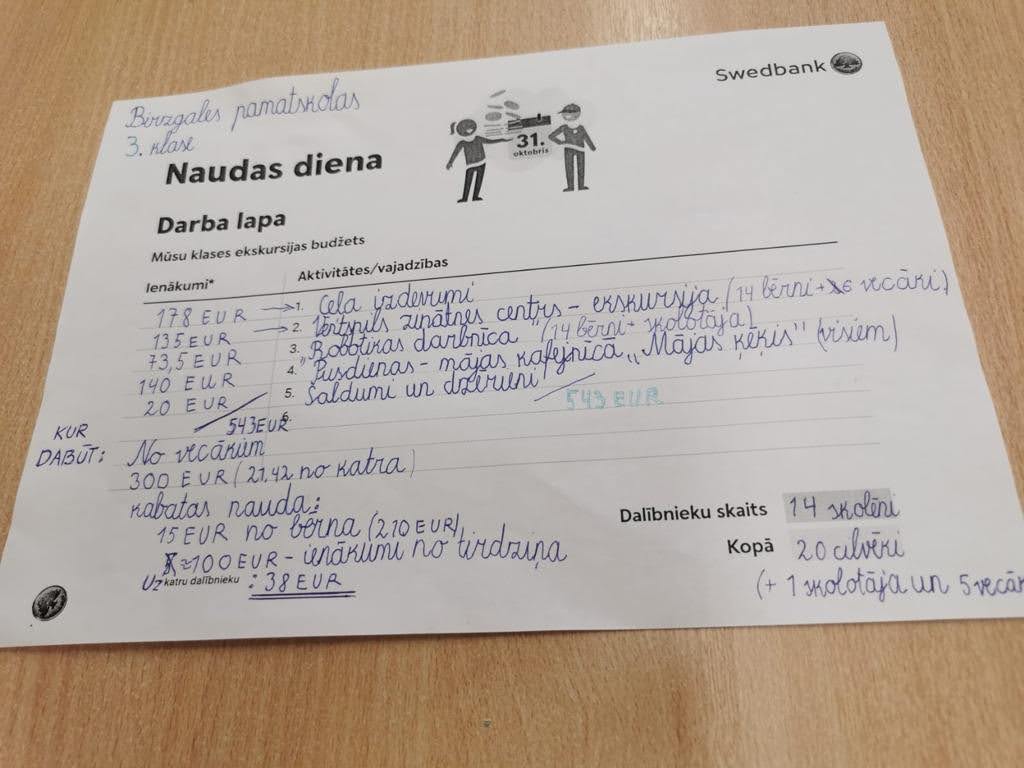 Swedbank
Birzgales pamatskolas
3. klase
31.
oktobris
Naudas diena
Darba lapa
Mūsu klases ekskursijas budžets
Ienākumi* Aktivitātes/vajadzības
178 EUR → 1. Ceļa izdevumi
135 EUR → 2. Ventspils zinātnes centrs - ekskursija (14 bērni + 6 vecāki)
73,5 EUR 3. "Robotikas darbnīca" (14 bērni + skolotāja)
140 EUR 4. Pusdienas - mājas kafejnīcā "Mājas ķēķis" (visiem)
20 EUR 5. Saldumi un dzērieni
543 EUR 6. 543 EUR
KUR DABŪT: No vecākiem
300 EUR (21,42 no katra)
Kabatas nauda:
15 EUR no bērna (210 EUR)
≈100 EUR - ienākumi no tirdziņa
Uz katru dalībnieku : 38 EUR
Dalībnieku skaits 14 skolēni
Kopā 20 cilvēki
(+ 1 skolotāja un 5 vecāk